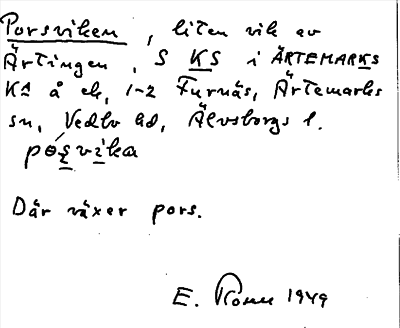 Porsviken, liten vik av
Ärtingen, S KS i ÄRTEMARKS
KS å ek, 1-2 Furnäs, Ärtemarks
sn, Vedbo hd, Älvsborgs l.
Där växer pors.
E. 1949